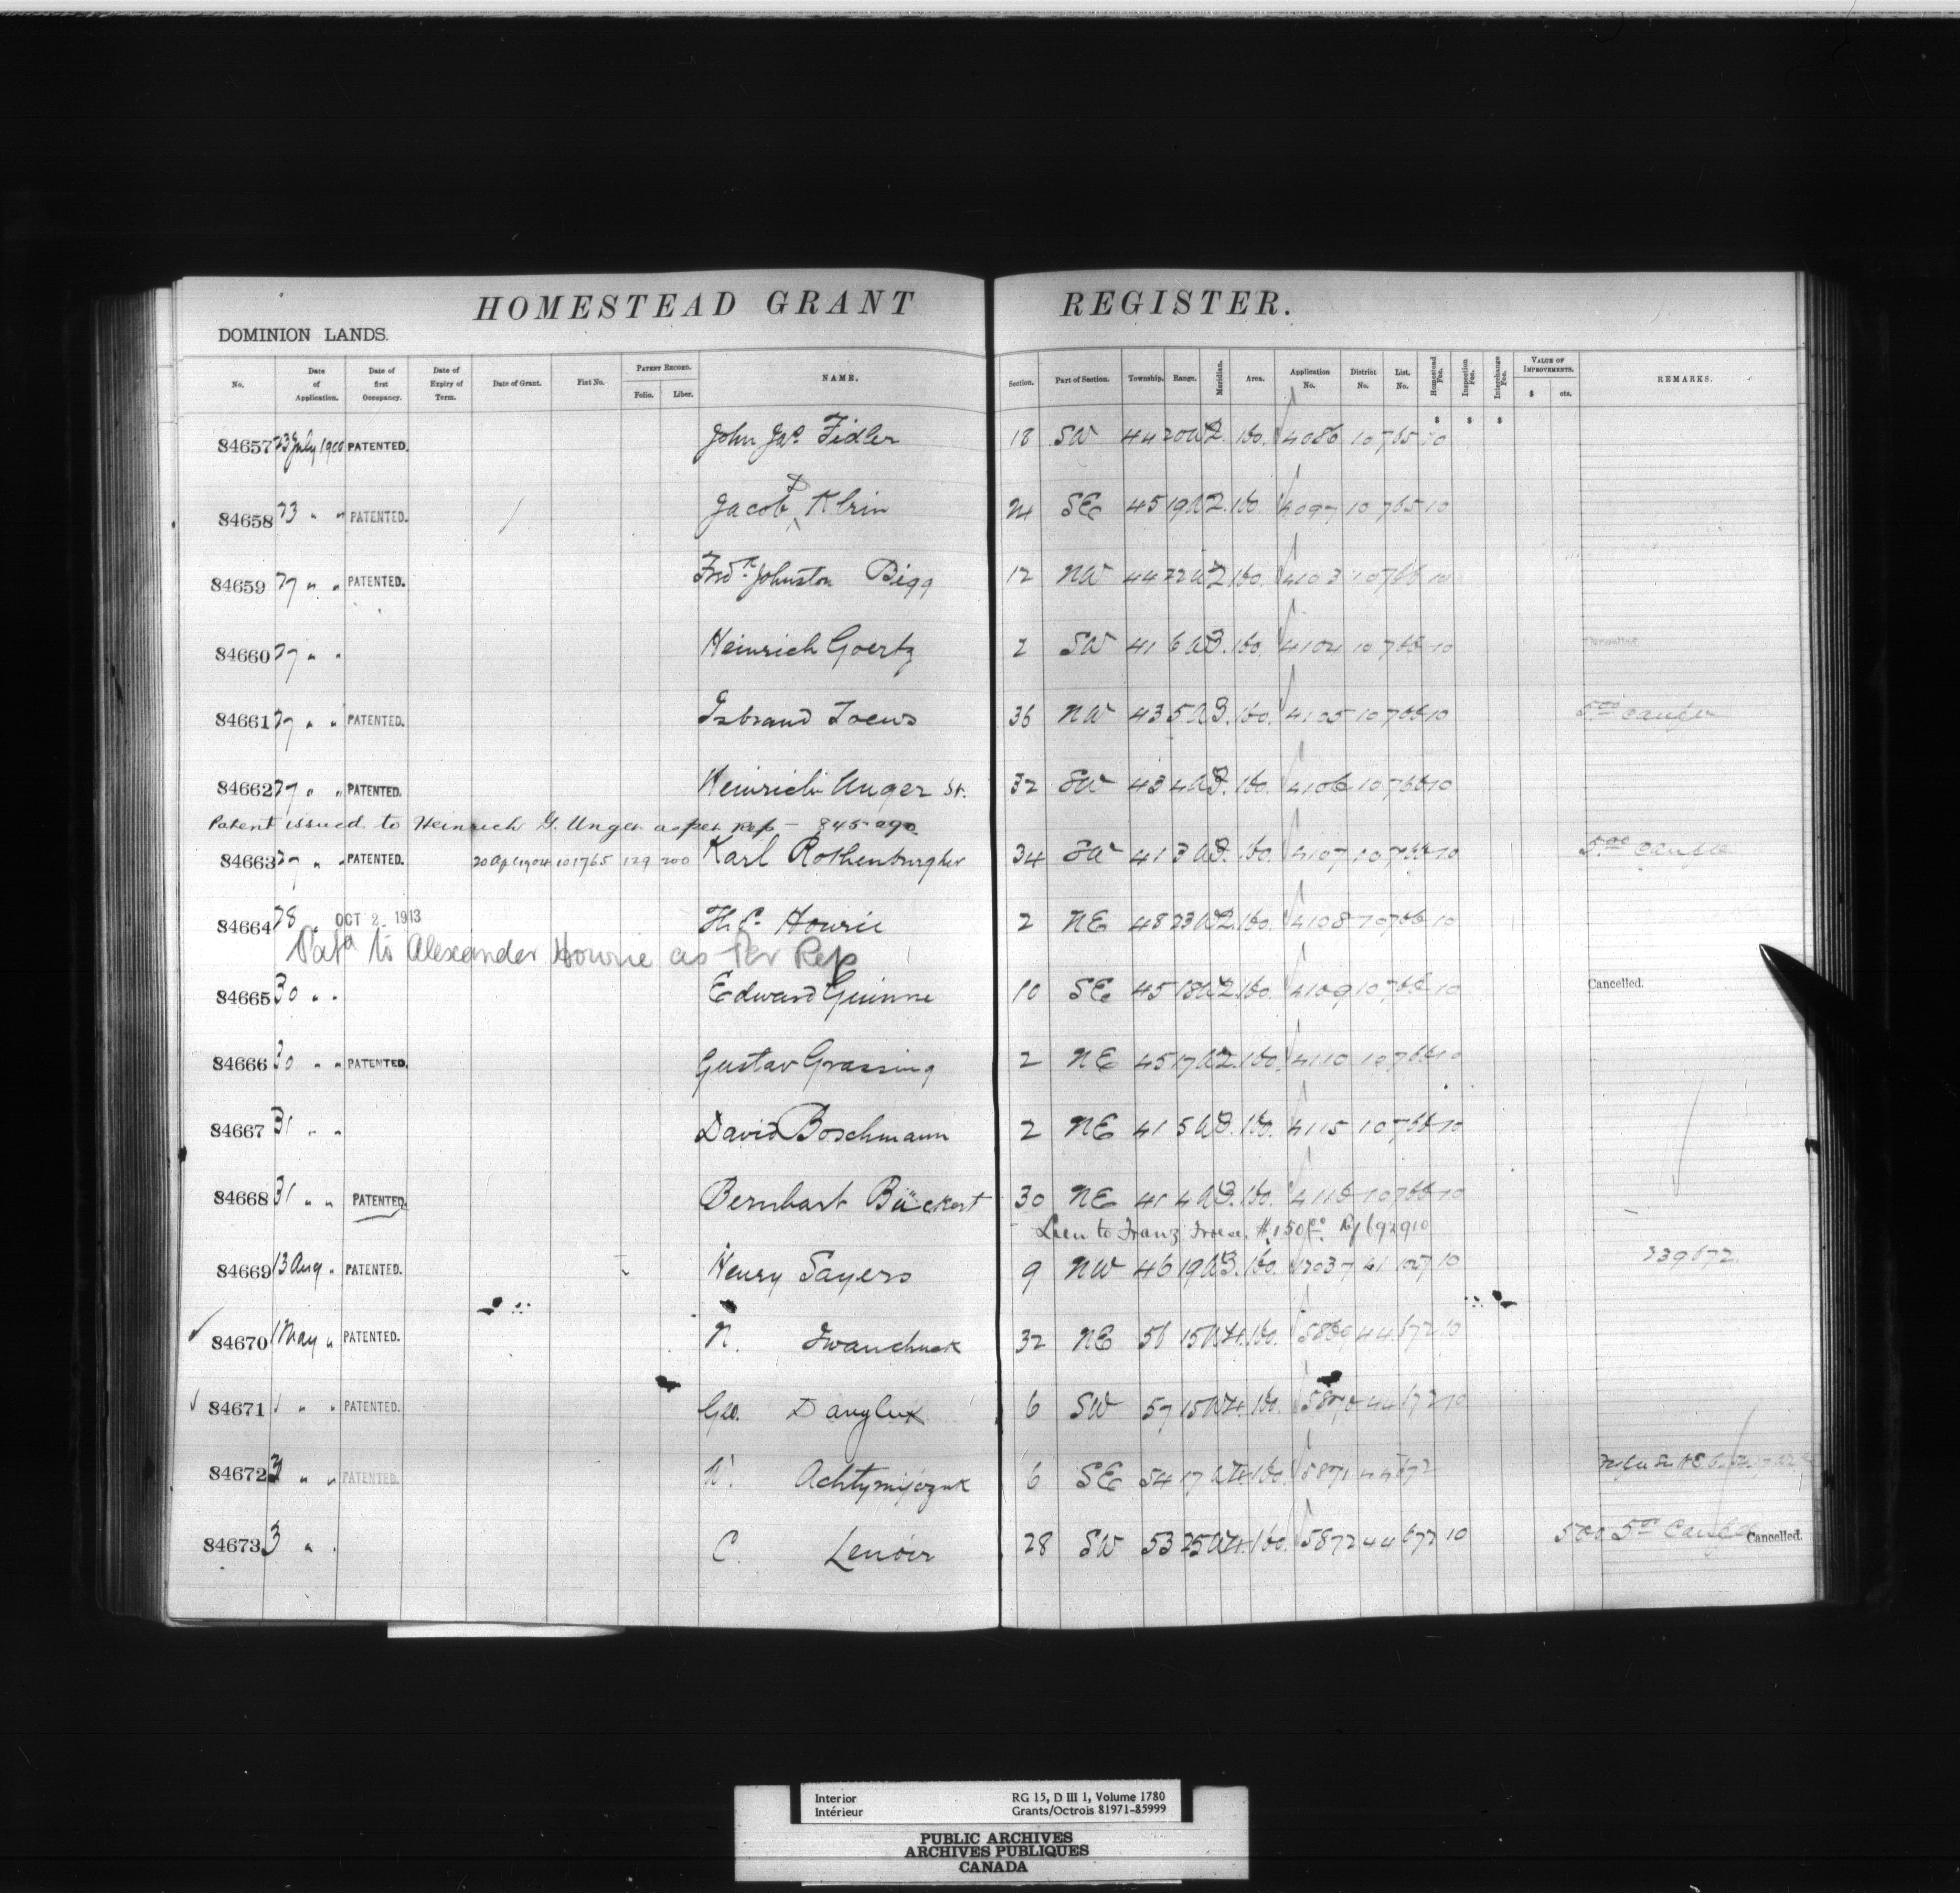 HOMESTEAD GRANT REGISTER.
DOMINION LANDS.
No. Date of Application. Date of first Occupancy. Date of Expiry of Term. Date of Grant. Fiat No. PATENT RECORD. Folio. Liber. NAME. Section. Part of Section. Township. Range. Meridian. Area. Application No. District No. List. No. Homestead Fee. Inspection Fee. Interchange Fee. VALUE OF IMPROVEMENTS. $ cts. REMARKS.
$ $ $
84657 23 July 1900 PATENTED. John Jas. Fidler 18 SW 44 20 W2. 160. 4086 10 765 10
84658 23 " " PATENTED. Jacob D Klein 24 SE 45 19 W2. 160. 4097 10 765 10
84659 27 " " PATENTED. Fredk. Johnston Bigg 12 NW 44 22 W2 160. 4103 10 766 10
84660 27 " " Heinrich Goertz 2 SW 41 6 W3. 160. 4104 10 766 10
84661 27 " " PATENTED. Isbrand Loews 36 NW 43 5 W3. 160. 4105 10 766 10 5.00
84662 27 " " PATENTED. Heinrich Unger Sr. 32 SW 43 4 W3. 160. 4106 10 766 10
Patent issued to Heinrich G. Unger as per Rep - 845090
84663 27 " " PATENTED. 20 Apl 1904 101765 129 200 Karl Rothenburgher 34 SW 41 3 W3. 160. 4107 10 766 10 5.00
84664 28 " OCT 2 1913 H. C. Howrie 2 NE 48 23 W2. 160. 4108 10 766 10
Pat'd to Alexander Howrie as Per Rep
84665 30 " " Edward Guinne 10 SE 45 18 W2. 160. 4109 10 766 10 Cancelled.
84666 30 " " PATENTED. Gustav Grassing 2 NE 45 17 W2. 160. 4110 10 766 10
84667 31 " " David Boschmann 2 NE 41 5 W3. 160. 4115 10 766 10
84668 31 " " PATENTED. Bernhart Bückert 30 NE 41 4 W3. 160. 4116 10 766 10
Lien to Franz Froese. $150.00 Rf 692910
84669 13 Aug " PATENTED. Henry Sayers 9 NW 46 19 W3. 160. 1203 7 41 107 10 239672
84670 1 May " PATENTED. N. Iwanchuk 32 NE 56 15 W4. 160. 5869 44 672 10
84671 1 " " PATENTED. Geo. Danyluk 6 SW 57 15 W4. 160. 5870 44 672 10
84672 3 " " PATENTED. W. Achtymijczuk 6 SE 54 17 W4. 160. 5871 44 672
84673 3 " " C. Lenoir 28 SW 53 25 W4. 160. 5872 44 672 10 500 5.00 Cancelled.
Interior RG 15, D III 1, Volume 1780
Intérieur Grants/Octrois 81971-85999
PUBLIC ARCHIVES
ARCHIVES PUBLIQUES
CANADA